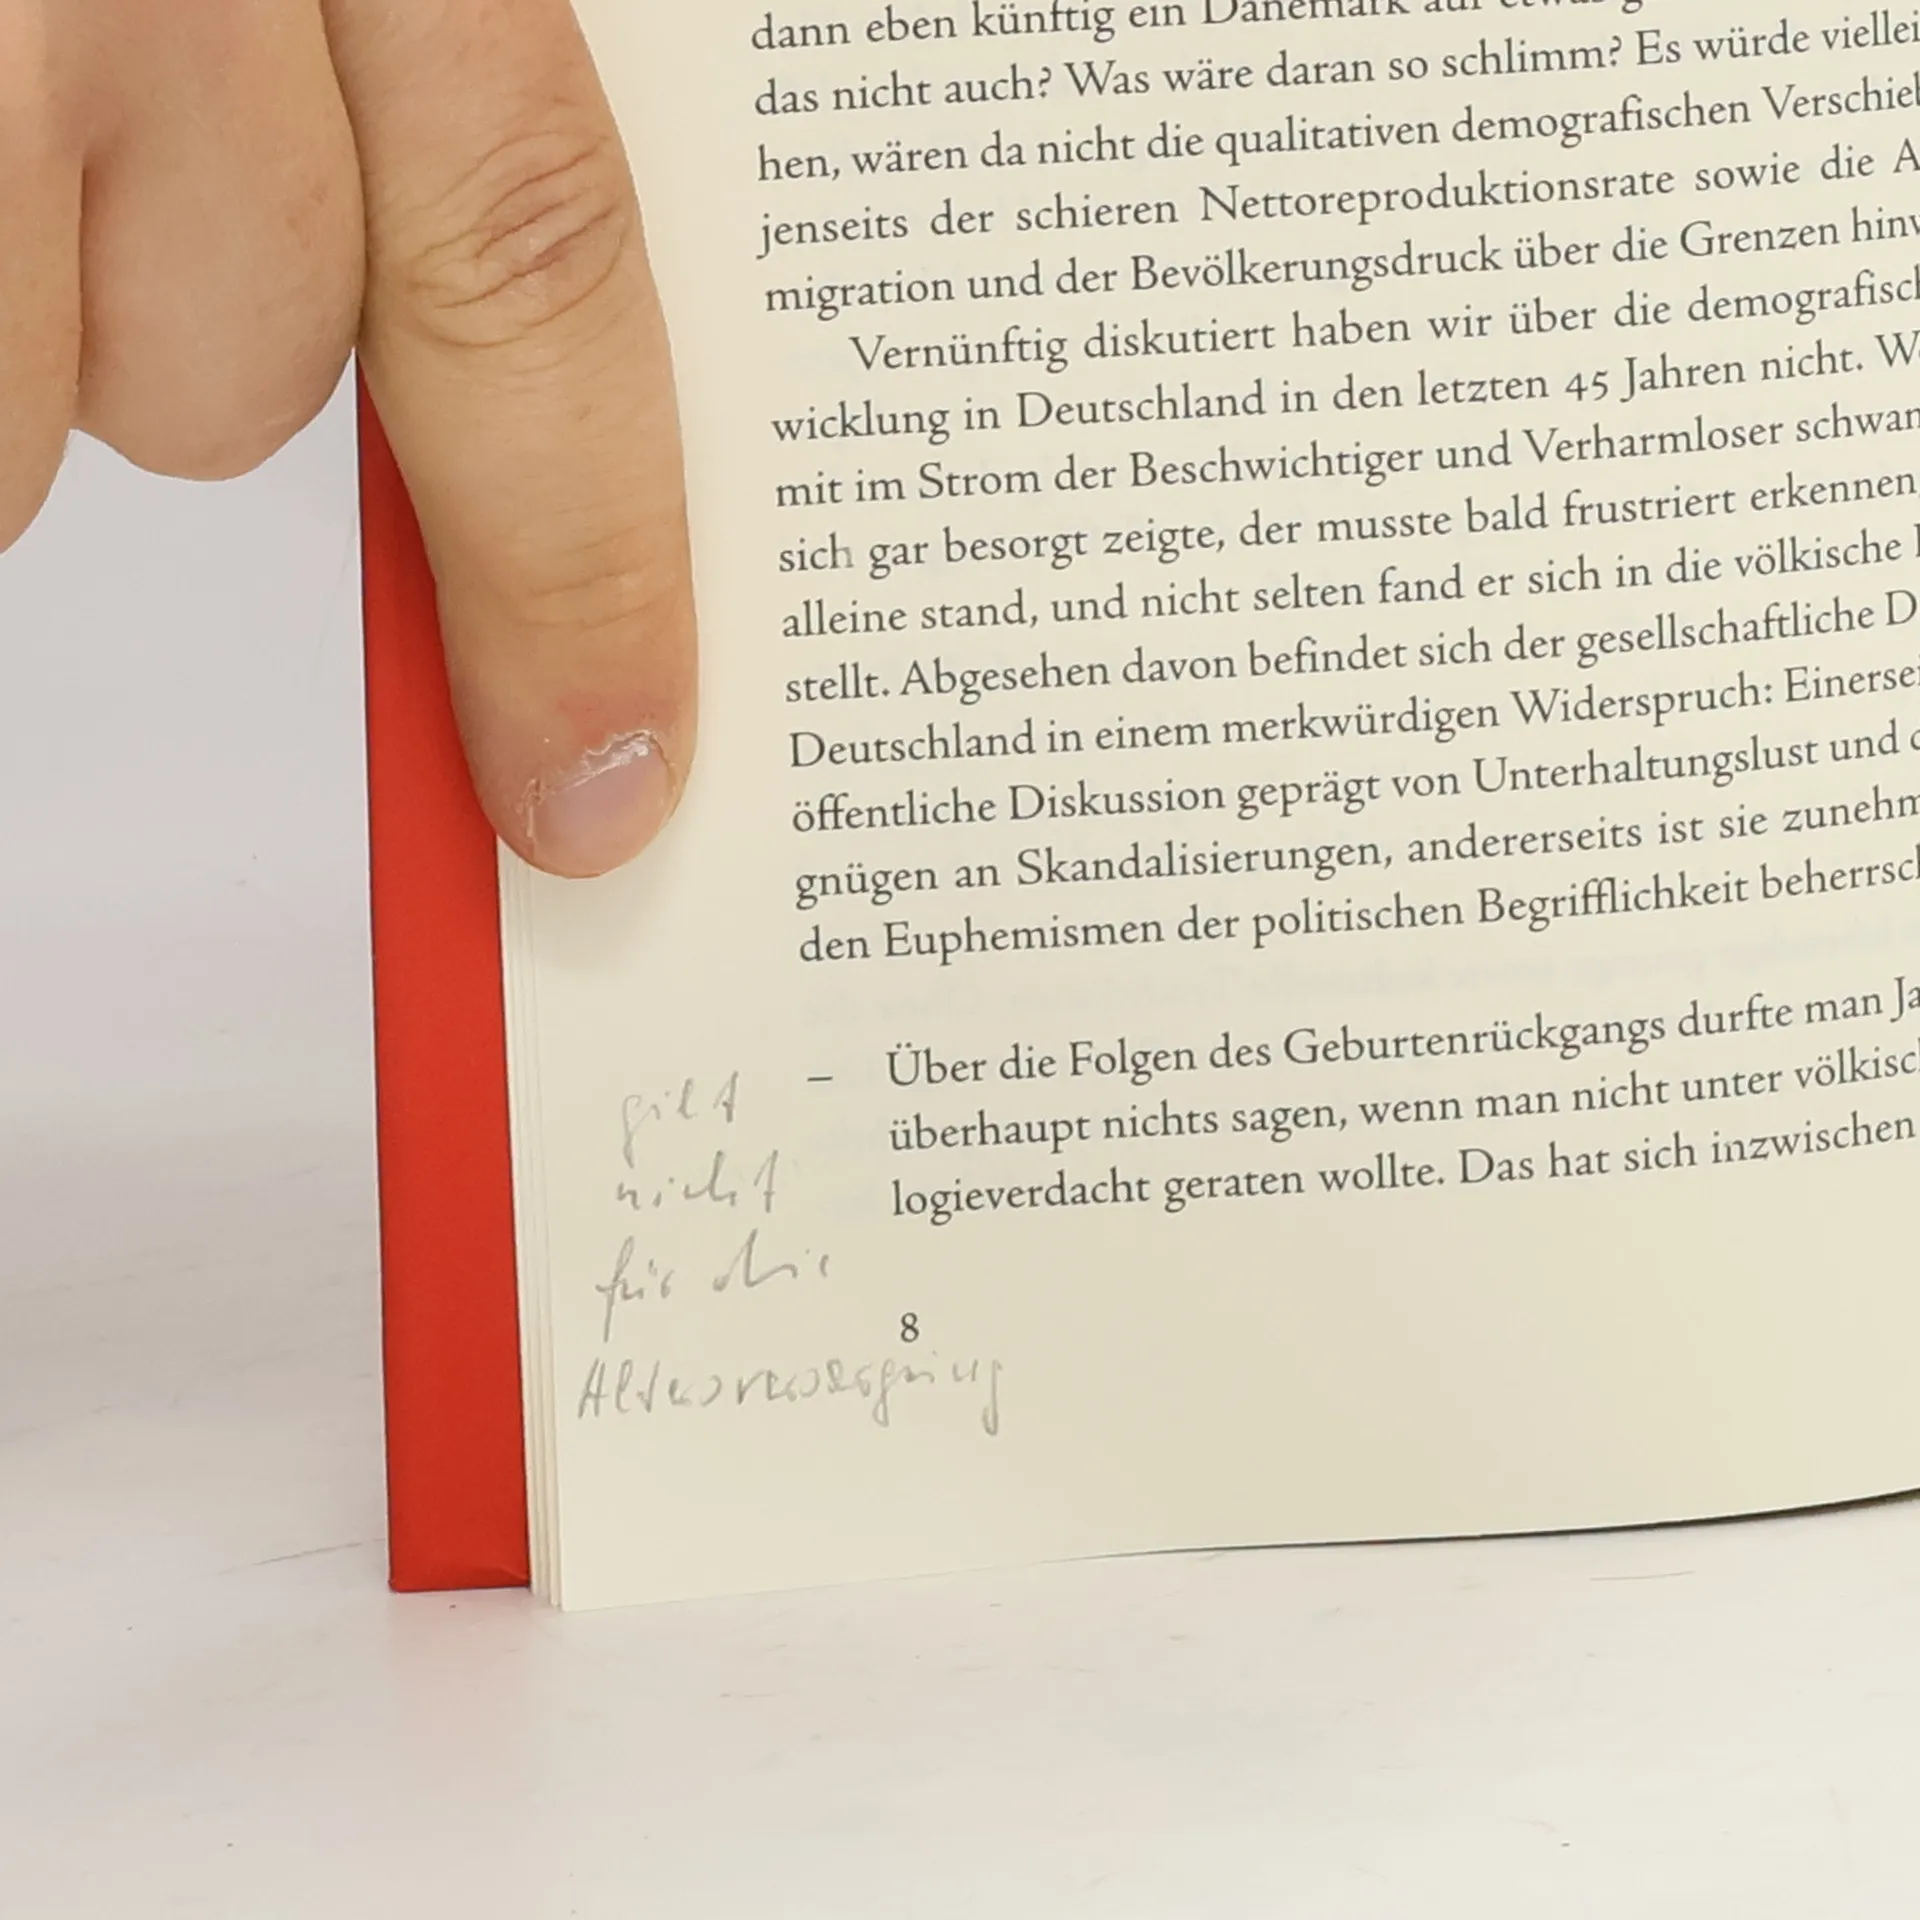 dann eben künftig ein Dänemark auf etwas
das nicht auch? Was wäre daran so schlimm? Es würde viellei
hen, wären da nicht die qualitativen demografischen Verschieb
jenseits der schieren Nettoreproduktionsrate sowie die A
migration und der Bevölkerungsdruck über die Grenzen hinw
Vernünftig diskutiert haben wir über die demografisch
wicklung in Deutschland in den letzten 45 Jahren nicht. W
mit im Strom der Beschwichtiger und Verharmloser schwam
sich gar besorgt zeigte, der musste bald frustriert erkennen,
alleine stand, und nicht selten fand er sich in die völkische
stellt. Abgesehen davon befindet sich der gesellschaftliche D
Deutschland in einem merkwürdigen Widerspruch: Einersei
öffentliche Diskussion geprägt von Unterhaltungslust und
gnügen an Skandalisierungen, andererseits ist sie zunehm
den Euphemismen der politischen Begrifflichkeit beherrsch
– Über die Folgen des Geburtenrückgangs durfte man Ja
überhaupt nichts sagen, wenn man nicht unter völkisch
logieverdacht geraten wollte. Das hat sich inzwischen
gilt
nicht
für die
Altersversorgung
8